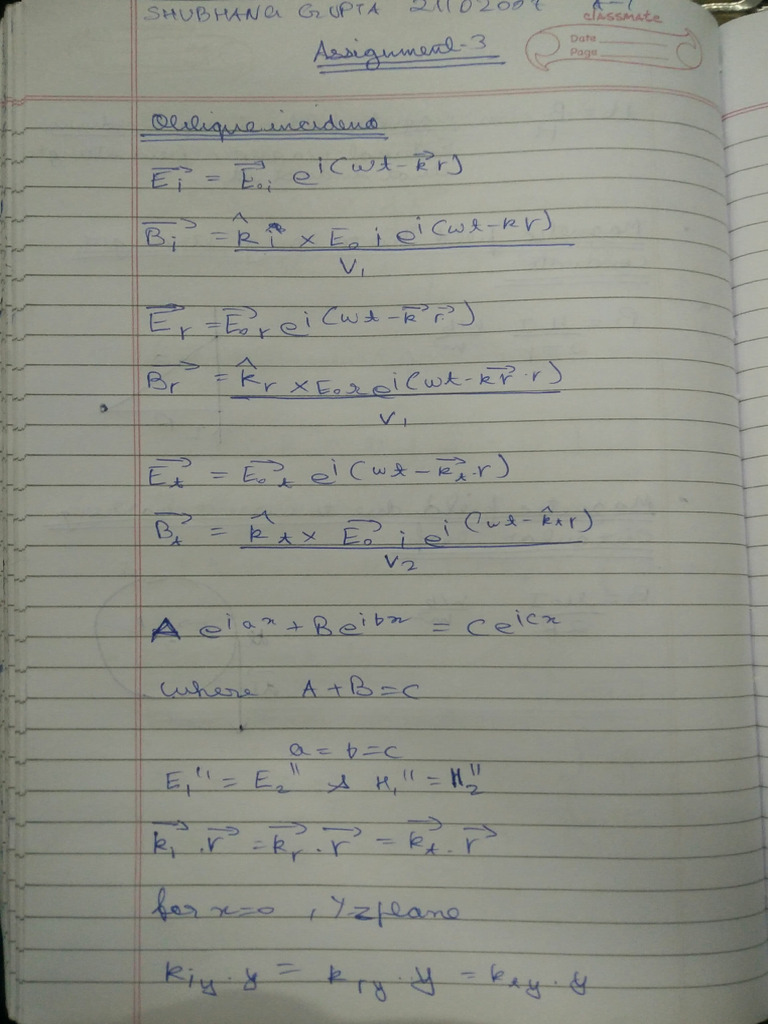 SHUBHANG GUPTA 21102007 A-1
classmate
Date
Page
Assignment-3
Oblique incidence
$\vec{E_i} = \vec{E_{0i}} e^{i(\omega t - \vec{k} r)}$
$\vec{B_i} = \frac{\hat{k} i \times E_0 i e^{i(\omega t - kr)}}{V_1}$
$\vec{E_r} = \vec{E_{0r}} e^{i(\omega t - \vec{k} \vec{r})}$
$\vec{B_r} = \frac{\hat{k}_r \times E_{0r} e^{i(\omega t - \vec{kr} \cdot r)}}{V_1}$
$\vec{E_t} = \vec{E_{0t}} e^{i(\omega t - \vec{k_t} \cdot r)}$
$\vec{B_t} = \frac{\hat{k}_t \times \vec{E_0} i e^{i(\omega t - \hat{k}_t r)}}{V_2}$
$A e^{iax} + B e^{ibx} = C e^{icx}$
where A+B=C
a = b = c
$E_1'' = E_2''$ & $H_1'' = H_2''$
$\vec{k_i} \cdot \vec{r} = \vec{k_r} \cdot \vec{r} = \vec{k_t} \cdot \vec{r}$
for x=0 , YZ plane
$k_{iy} \cdot y = k_{ry} \cdot y = k_{ty} \cdot y$